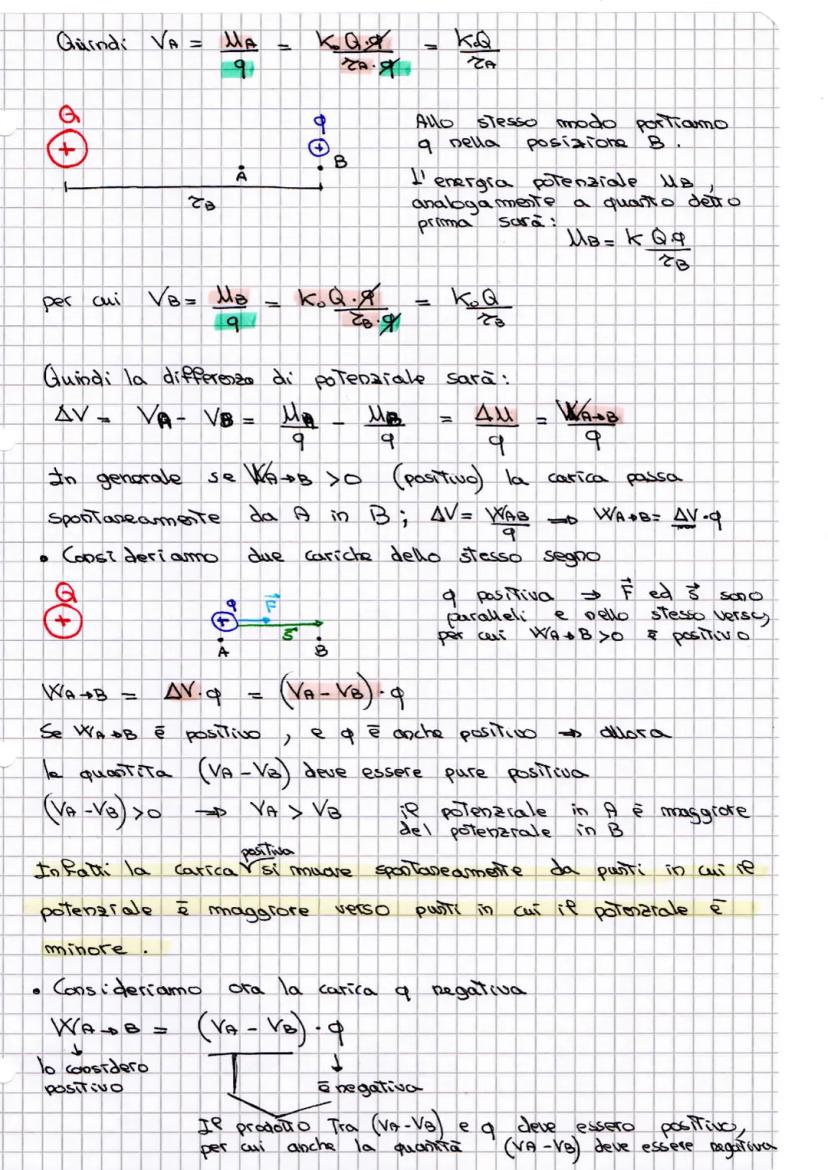 Quindi VA = UA/q = K₀Q·q/rA·q = K₀Q/rA
Q
+
q
+
A
B
rB
Allo stesso modo portiamo
q nella posizione B.
L'energia potenziale UB,
analogamente a quanto detto
prima sarà:
UB = K Q·q/rB
per cui VB = UB/q = K₀Q·q/rB·q = K₀Q/rB
Quindi la differenza di potenziale sarà:
ΔV = VA - VB = UA/q - UB/q = ΔU/q = WA→B/q
In generale se WA→B >0 (positivo) la carica passa
spontaneamente da A in B; ΔV = WAB/q ⇒ WA→B = ΔV·q
• Consideriamo due cariche dello stesso segno
Q
+
q
+
F⃗
s⃗
A
B
q positiva ⇒ F⃗ ed s⃗ sono
paralleli e nello stesso verso,
per cui WA→B>0 è positivo
WA→B = ΔV·q = (VA-VB)·q
Se WA→B è positivo, e q è anche positivo ⇒ allora
la quantità (VA-VB) deve essere pure positiva
(VA-VB)>0 ⇒ VA > VB il potenziale in A è maggiore
del potenziale in B
positiva
Infatti la carica √ si muove spontaneamente da punti in cui il
potenziale è maggiore verso punti in cui il potenziale è
minore.
• Consideriamo ora la carica q negativa
WA→B = (VA - VB)·q
↓ ↓
lo considero
positivo
è negativa
Il prodotto tra (VA-VB) e q deve essere positivo,
per cui anche la quantità (VA-VB) deve essere negativa